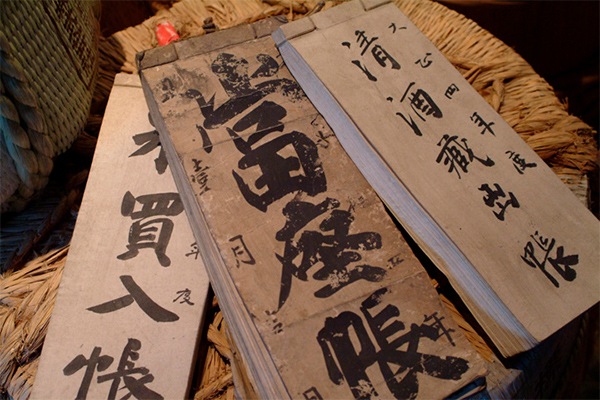 大正四年度
清酒藏出帳
當座帳
壹月
買入帳
年度